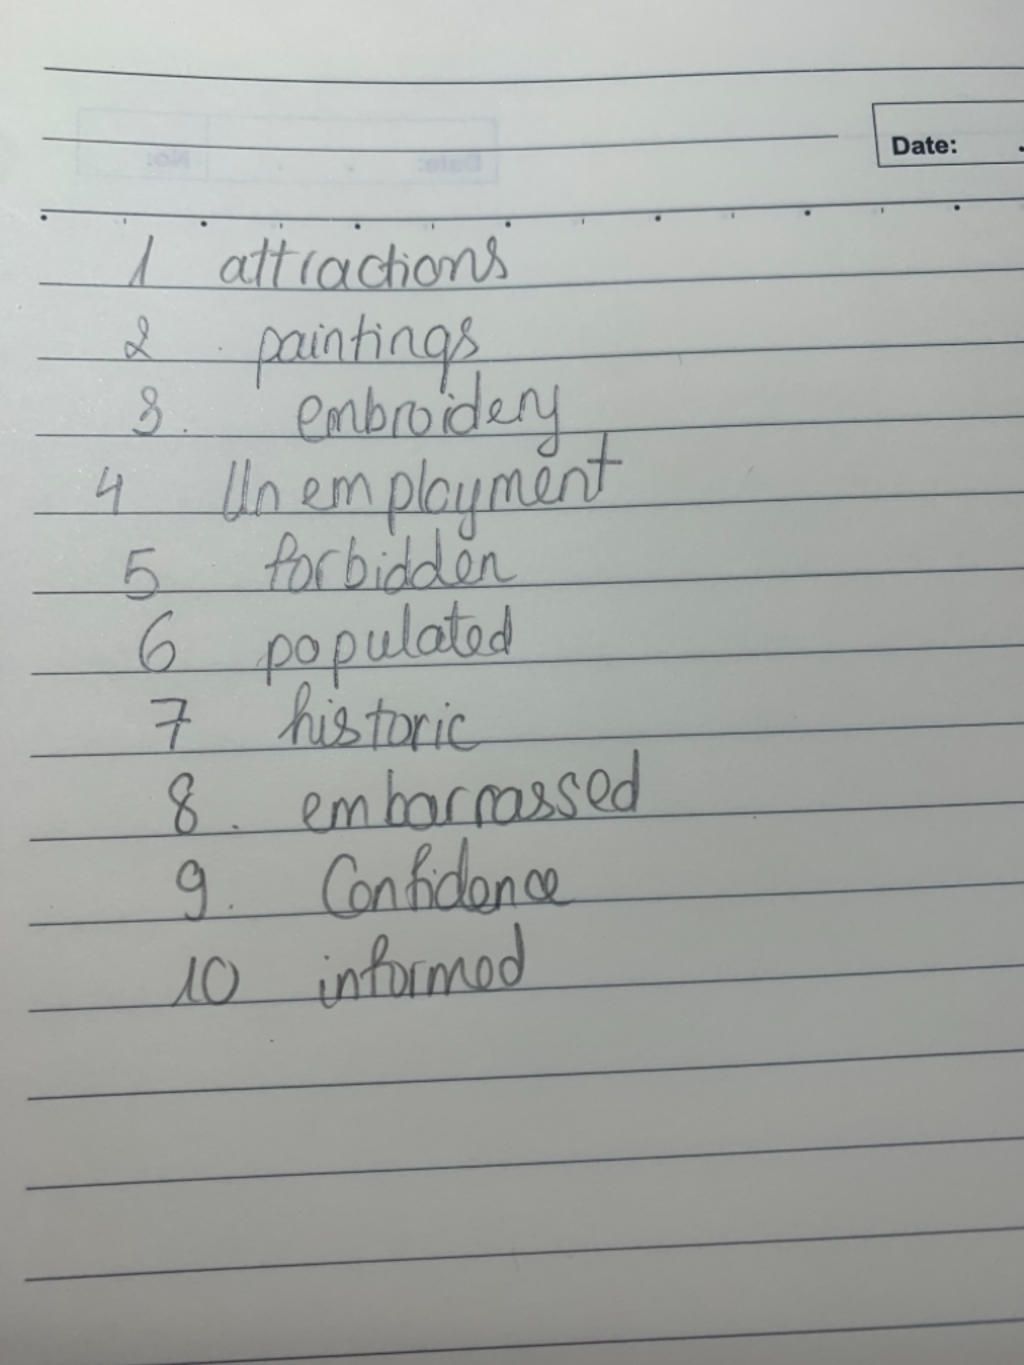 Date:
1 attractions
2 . paintings
3. embroidery
4 Unemployment
5 forbidden
6 populated
7 historic
8. embarrassed
9. Confidence
10 informed